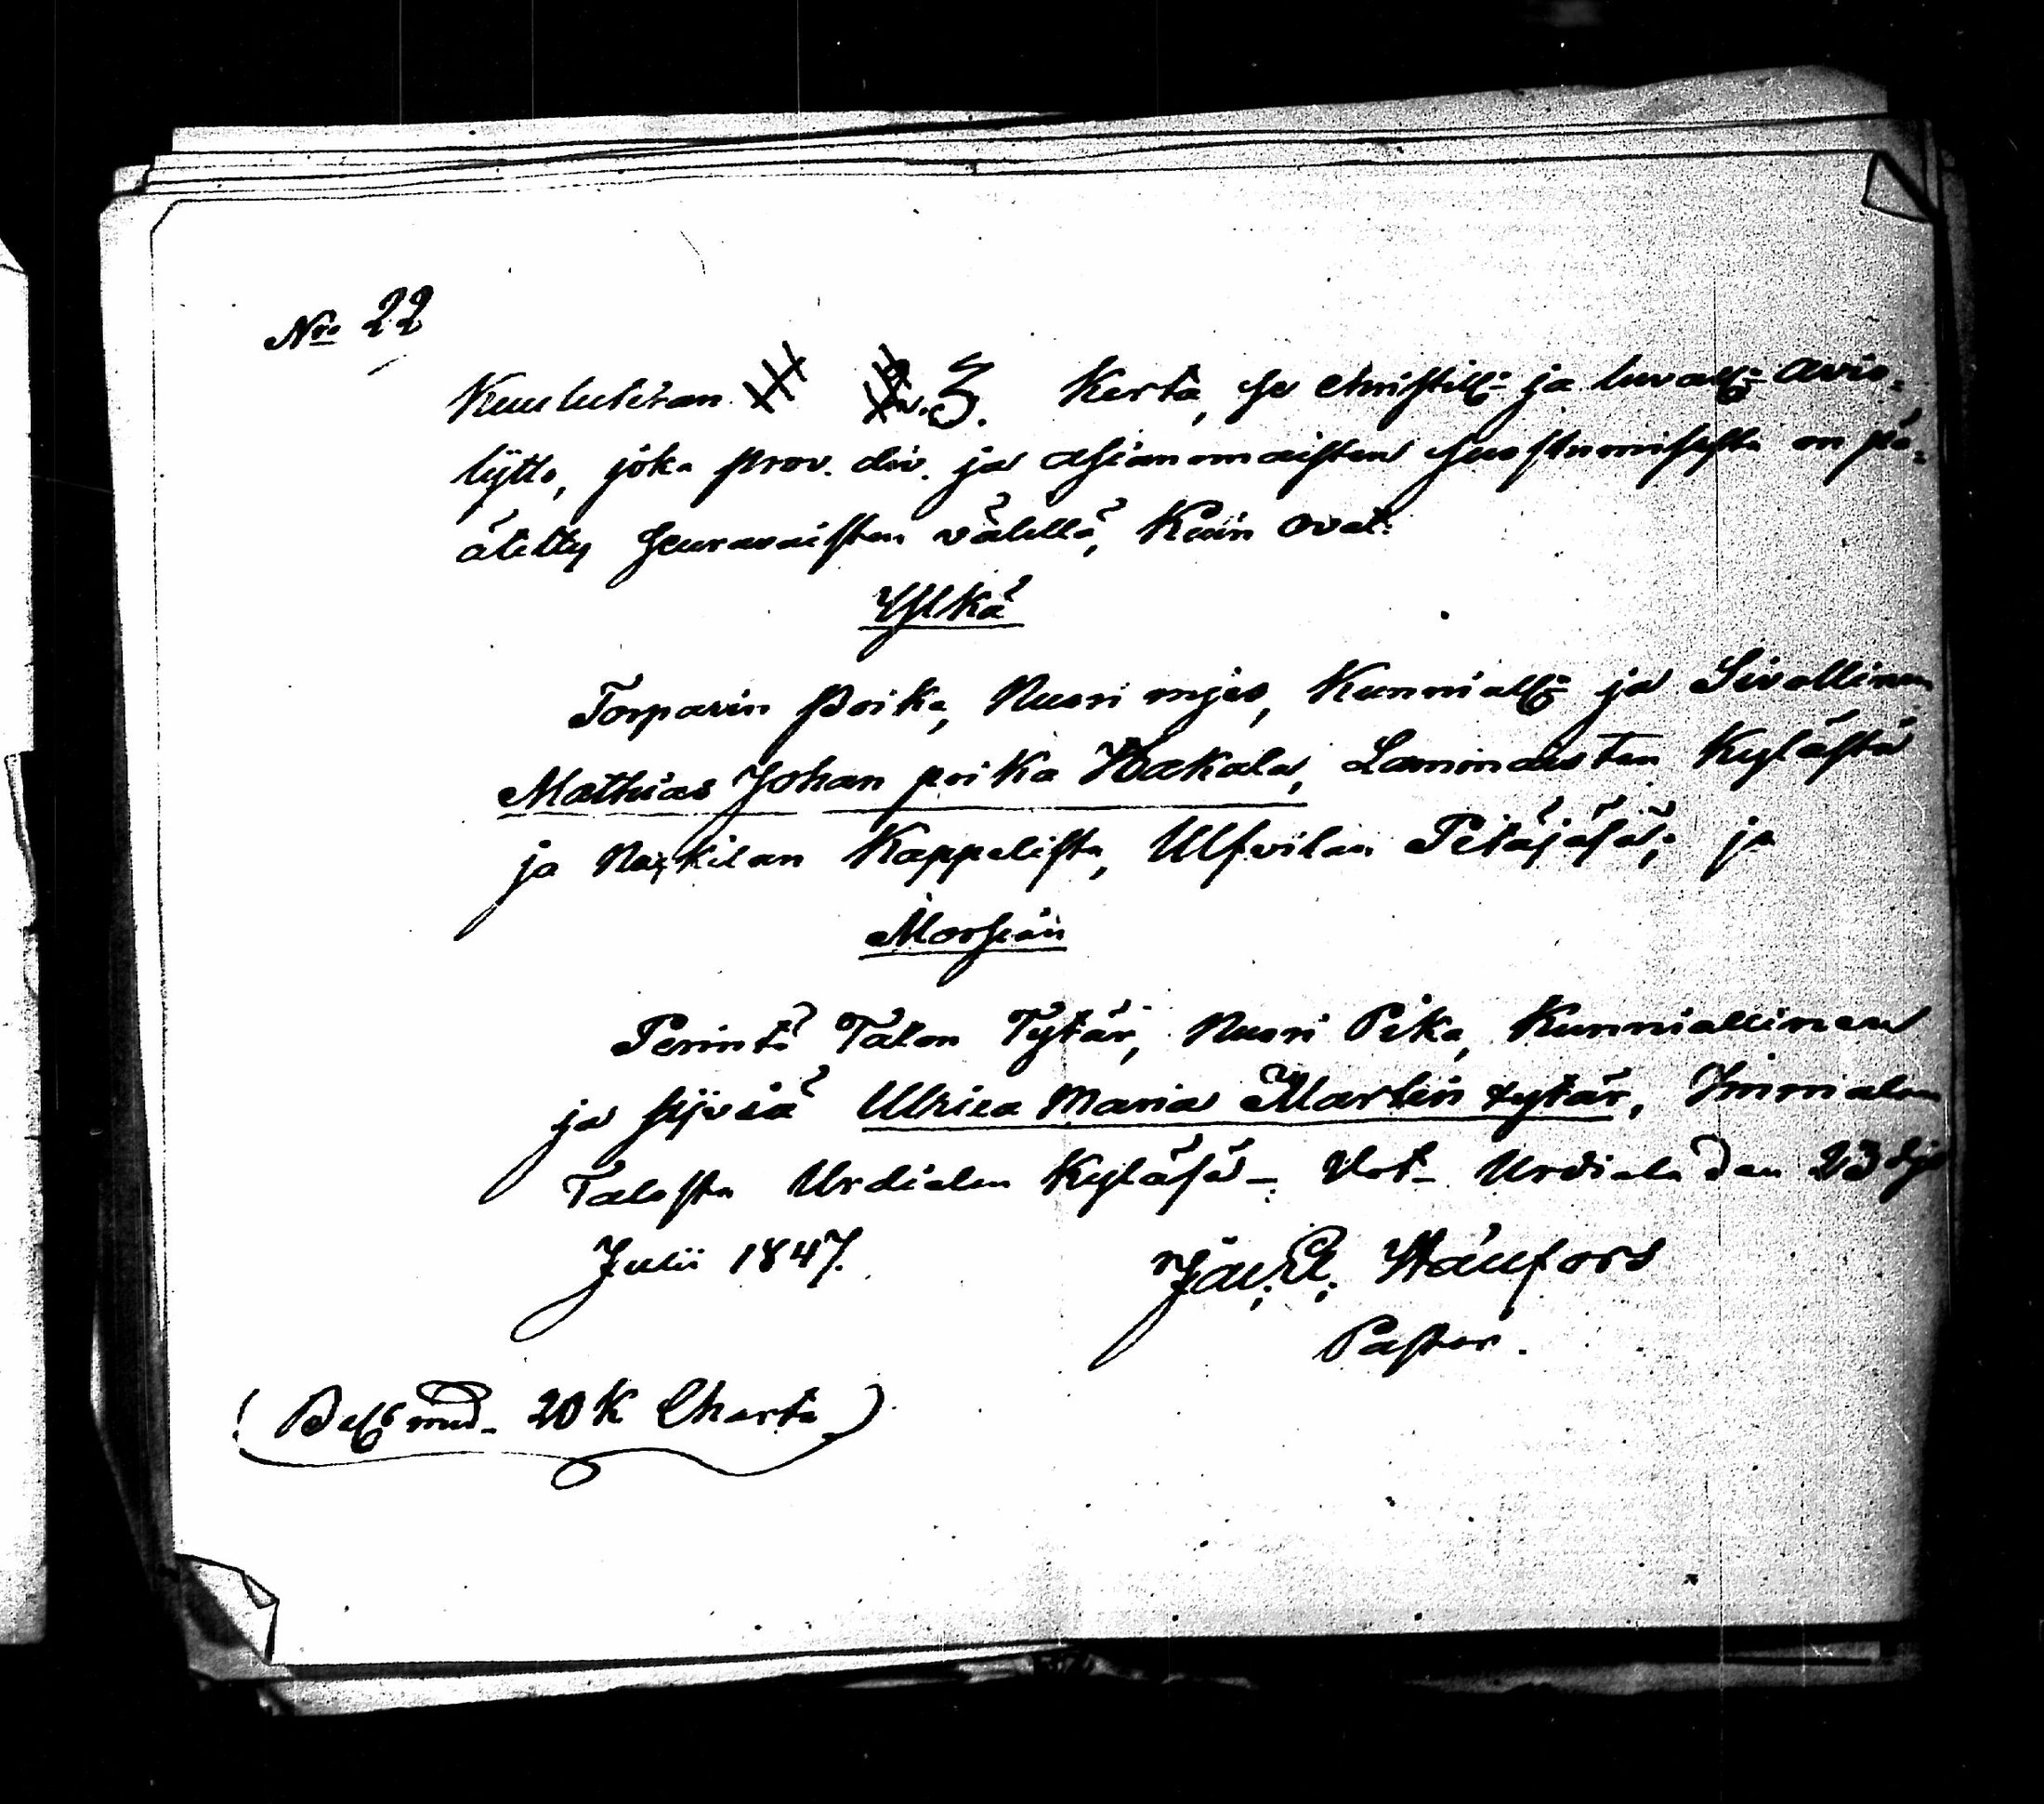 No 22
Kuulutetan 3. Kerta, se christill: ja luvall: avio-
lijtto, joka prov. div. ja asianomaisten suostumisesta on pä-
ätetty seuravaisten välillä, Kuin ovat:
Ylkä
Torparin Poika, Nuori mjes, Kunniall: ja Sivallinen
Mathias Johan poika Hakala, Lammaisten Kylästä
ja Nakkilan Kappelista, Ulfvilan Pitäjäsä; ja
Morsian
Perintö Talon Tytär, Nuori Pika, Kunniallinen
ja sijviä Ulrica Maria Martin tytär, Immalan
Talosta Urdialan Kyläsä - Urdiala den 23
Julii 1847.
Pastor.
20 K Charta)